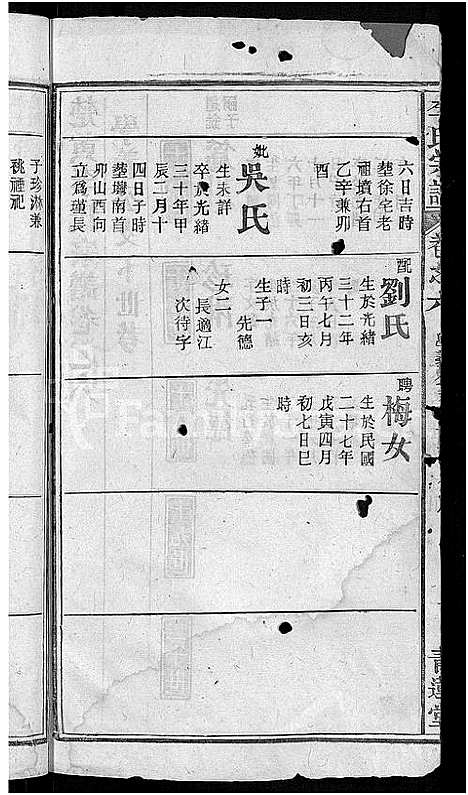 李氏宗譜
卷之六
青蓮堂
六日吉時
塟徐宅老
祖墳右首
乙辛兼卯
酉
妣吳氏
生未詳
卒於光緒
三十年甲
辰二月十
四日子時
塟塆南首
卯山西向
立為瑾長
子珍淋兼
祧禋祀
配劉氏
生於光緒
三十二年
丙午七月
初三日亥
時
生子一
先德
女二
長適江
次待字
聘梅女
生於民國
二十七年
戊寅四月
初七日巳
時